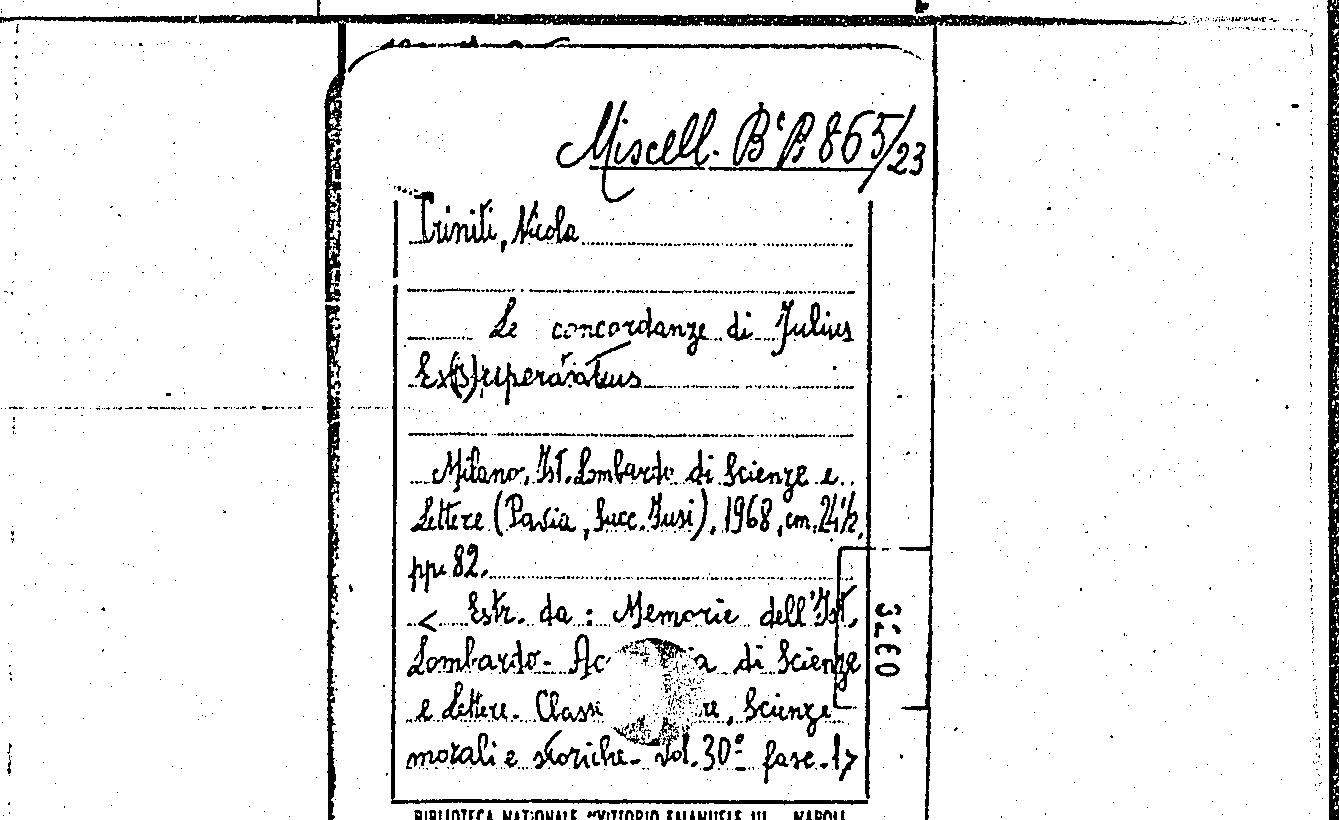 Miscell. B'B 865/23
Triniti, Nicola
Le concordanze di Julius
Ex(s)uperantius
Milano, Ist. Lombardo di Scienze e
Lettere (Pavia, Succ. Fusi), 1968, cm. 24½,
pp. 82.
< Estr. da: Memorie dell'Ist.
Lombardo - Ac ia di Scienze
e Lettere. Classe re, Scienze
morali e storiche - vol. 30º fasc. 1>
0323
BIBLIOTECA NAZIONALE "VITTORIO EMANUELE III" NAPOLI